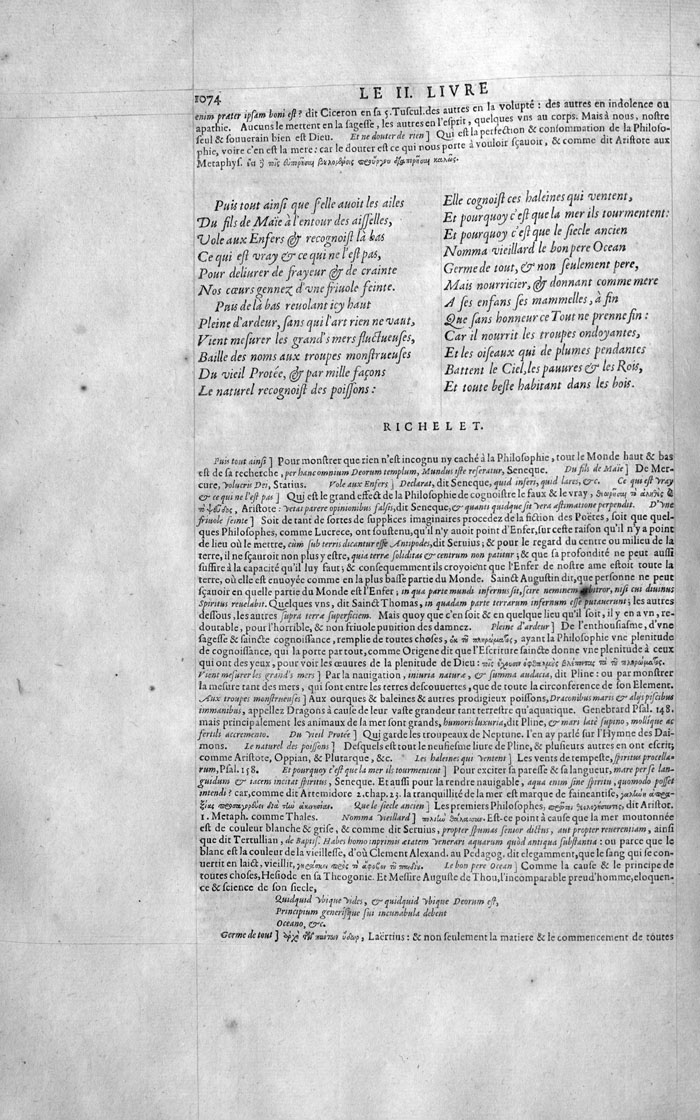 1074
LE II. LIVRE
enim præter ipsam boni est? dit Ciceron en sa 5. Tuscul. des autres en la volupté: des autres en indolence ou
apathie. Aucuns le mettent en la sagesse, les autres en l'esprit, quelques vns au corps. Mais à nous, nostre
seul & souuerain bien est Dieu. Et ne douter de rien] Qui est la perfection & consommation de la Philoso-
phie, voire c'en est la mere: car le douter est ce qui nous porte à vouloir sçauoir, & comme dit Aristore aux
Metaphys.
Puis tout ainsi que s'elle auoit les ailes
Du fils de Maïe à l'entour des aisselles,
Vole aux Enfers & recognoist là bas
Ce qui est vray & ce qui ne l'est pas,
Pour deliurer de frayeur & de crainte
Nos cœurs gennez d'vne friuole feinte.
Puis de là bas reuolant icy haut
Pleine d'ardeur, sans qui l'art rien ne vaut,
Vient mesurer les grand's mers fluctueuses,
Baille des noms aux troupes monstrueuses
Du vieil Protée, & par mille façons
Le naturel recognoist des poissons:
Elle cognoist ces haleines qui ventent,
Et pourquoy c'est que la mer ils tourmentent:
Et pourquoy c'est que le siecle ancien
Nomma vieillard le bon pere Ocean
Germe de tout, & non seulement pere,
Mais nourricier, & donnant comme mere
A ses enfans ses mammelles, à fin
Que sans honneur ce Tout ne prenne fin:
Car il nourrit les troupes ondoyantes,
Et les oiseaux qui de plumes pendantes
Battent le Ciel, les pauures & les Rois,
Et toute beste habitant dans les bois.
RICHELET.
Puis tout ainsi] Pour monstrer que rien n'est incognu ny caché à la Philosophie, tout le Monde haut & bas
est de sa recherche, per hanc omnium Deorum templum, Mundus iste reseratur, Seneque. Du fils de Maïe] De Mer-
cure, volucris Dei, Statius. Vole aux Enfers] Declarat, dit Seneque, quid inferi, quid lares, &c. Ce qui est vray
& ce qui ne l'est pas] Qui est le grand effect de la Philosophie de cognoistre le faux & le vray,
Aristote: vetat parere opinionibus falsis, dit Seneque, & quanti quidque sit vera æstimatione perpendit. D'vne
friuole feinte] Soit de tant de sortes de supplices imaginaires procedez de la fiction des Poëtes, soit que quel-
ques Philosophes, comme Lucrece, ont soustenu, qu'il n'y auoit point d'Enfer, sur ceste raison qu'il n'y a point
de lieu où le mettre, cùm sub terris dicantur esse Antipodes, dit Seruius; & pour le regard du centre ou milieu de la
terre, il ne sçauroit non plus y estre, quia terræ soliditas & centrum non patitur; & que sa profondité ne peut aussi
suffire à la capacité qu'il luy faut; & consequemment ils croyoient que l'Enfer de nostre ame estoit toute la
terre, où elle est enuoyée comme en la plus basse partie du Monde. Sainct Augustin dit, que personne ne peut
sçauoir en quelle partie du Monde est l'Enfer; in qua parte mundi infernus sit, scire neminem arbitror, nisi cui diuinus
Spiritus reuelabit. Quelques vns, dit Sainct Thomas, in quadam parte terrarum infernum esse putauerunt; les autres
dessous, les autres supra terræ superficiem. Mais quoy que c'en soit & en quelque lieu qu'il soit, il y en a vn, re-
doutable, pour l'horrible, & non friuole punition des damnez. Pleine d'ardeur] De l'enthousiasme, d'vne
sagesse & saincte cognoissance, remplie de toutes choses, ayant la Philosophie vne plenitude
de cognoissance, qui la porte par tout, comme Origene dit que l'Escriture saincte donne vne plenitude à ceux
qui ont des yeux, pour voir les œuures de la plenitude de Dieu:
Vient mesurer les grand's mers] Par la nauigation, iniuria naturæ, & summa audacia, dit Pline: ou par monstrer
la mesure tant des mers, qui sont entre les terres descouuertes, que de toute la circonference de son Element.
Aux troupes monstrueuses] Aux ourques & baleines & autres prodigieux poissons, Draconibus maris & aliis piscibus
immanibus, appellez Dragons à cause de leur vaste grandeur tant terrestre qu'aquatique. Genebrard Psal. 148.
mais principalement les animaux de la mer sont grands, humoris luxuria, dit Pline, & mari latè supino, mollique ac
fertili accremento. Du vieil Protée] Qui garde les troupeaux de Neptune. I'en ay parlé sur l'Hymne des Dai-
mons. Le naturel des poissons] Desquels est tout le neufiesme liure de Pline, & plusieurs autres en ont escrit;
comme Aristote, Oppian, & Plutarque, &c. Les haleines qui ventent] Les vents de tempeste, spiritus procella-
rum, Psal. 158. Et pourquoy c'est que la mer ils tourmentent] Pour exciter sa paresse & sa langueur, mare per se lan-
guidum & iacens incitat spiritus, Seneque. Et aussi pour la rendre nauigable, aqua enim sine spiritu, quomodo posset
intendi? car, comme dit Artemidore 2. chap. 23. la tranquillité de la mer est marque de faineantise,
Que le siecle ancien] Les premiers Philosophes, dit Aristot.
1. Metaph. comme Thales. Nomma vieillard] Est-ce point à cause que la mer moutonnée
est de couleur blanche & grise, & comme dit Seruius, propter spumas senior dictus, aut propter reuerentiam, ainsi
que dit Tertullian, de Baptis. Habes homo inprimis ætatem venerari aquarum quòd antiqua substantia: ou parce que le
blanc est la couleur de la vieillesse, d'où Clement Alexand. au Pedagog. dit elegamment, que le sang qui se con-
uertit en laict, vieillit, Le bon pere Ocean] Comme la cause & le principe de
toutes choses, Hesiode en sa Theogonie. Et Messire Auguste de Thou, l'incomparable preud'homme, eloquen-
ce & science de son siecle,
Quidquid vbique vides, & quidquid vbique Deorum est,
Principium generisque sui incunabula debent
Oceano, &c.
Germe de tout] Laërtius: & non seulement la matiere & le commencement de toutes